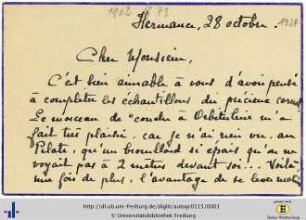 1962 / 73
Hermance, 28 octobre 1927
Cher Monsieur,
C'est bien aimable à vous d'avoir pensé
à compléter les échantillons du précieux
Le morceau de "coudre à Orbiculine m'a
fait très plaisir, car je n'ai rien vu, au
Pilate, qu'un brouillard si épais qu'on ne
voyait pas à 2 mètres devant soi... Voilà
une fois de plus, l'avantage de se lever
http://dl.ub.uni-freiburg.de/diglit/autogr0115/0001
© Universitätsbibliothek Freiburg